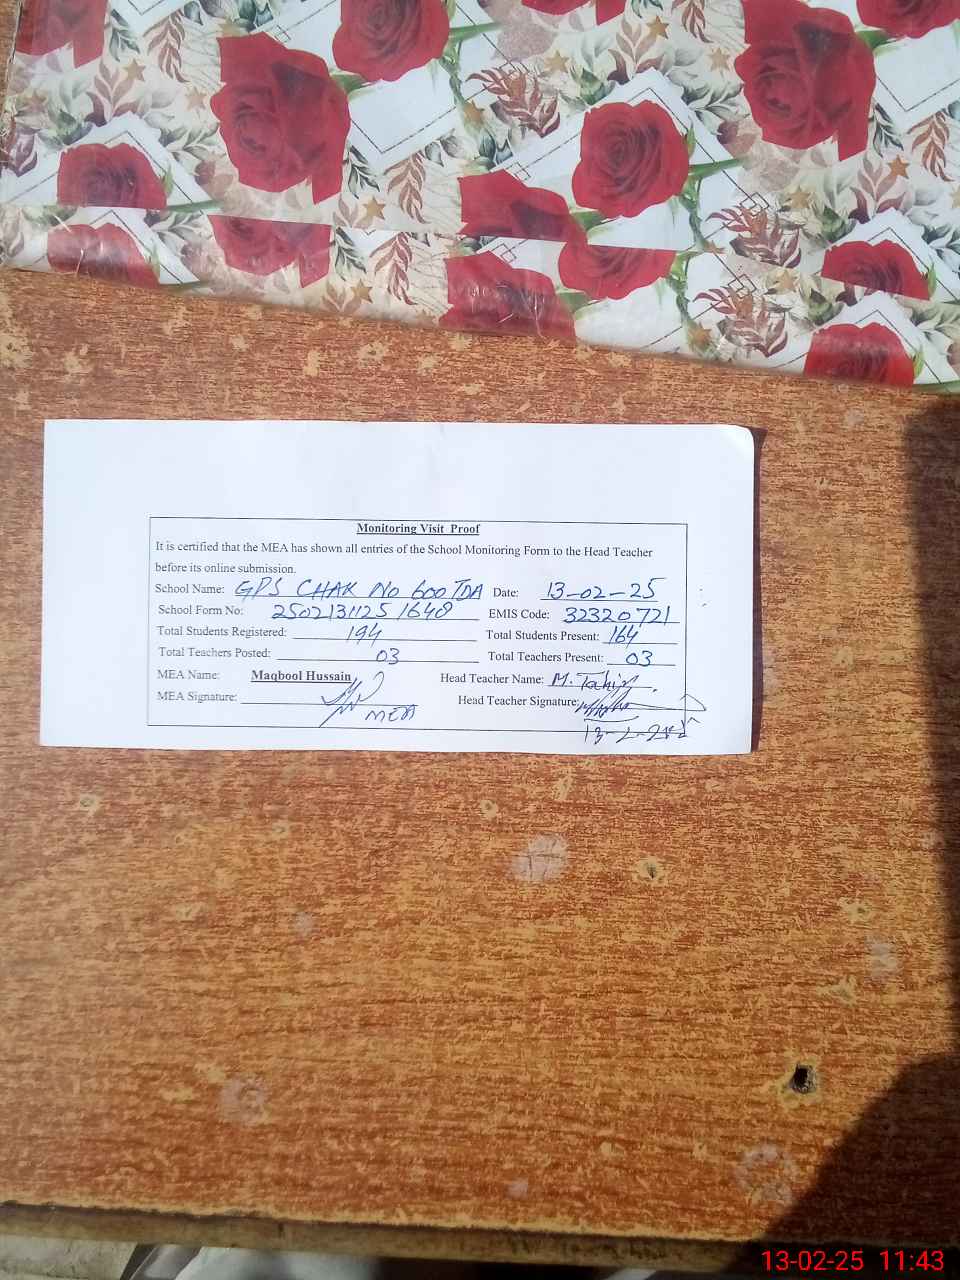 Monitoring Visit Proof
It is certified that the MEA has shown all entries of the School Monitoring Form to the Head Teacher
before its online submission.
School Name: GPS CHAK No 600 TDA Date: 13-02-25
School Form No: 25021311251648 EMIS Code: 32320721
Total Students Registered: 194 Total Students Present: 164
Total Teachers Posted: 03 Total Teachers Present: 03
MEA Name: Maqbool Hussain Head Teacher Name: M. Tahir
MEA Signature: MEA Head Teacher Signature:
13-02-25 11:43